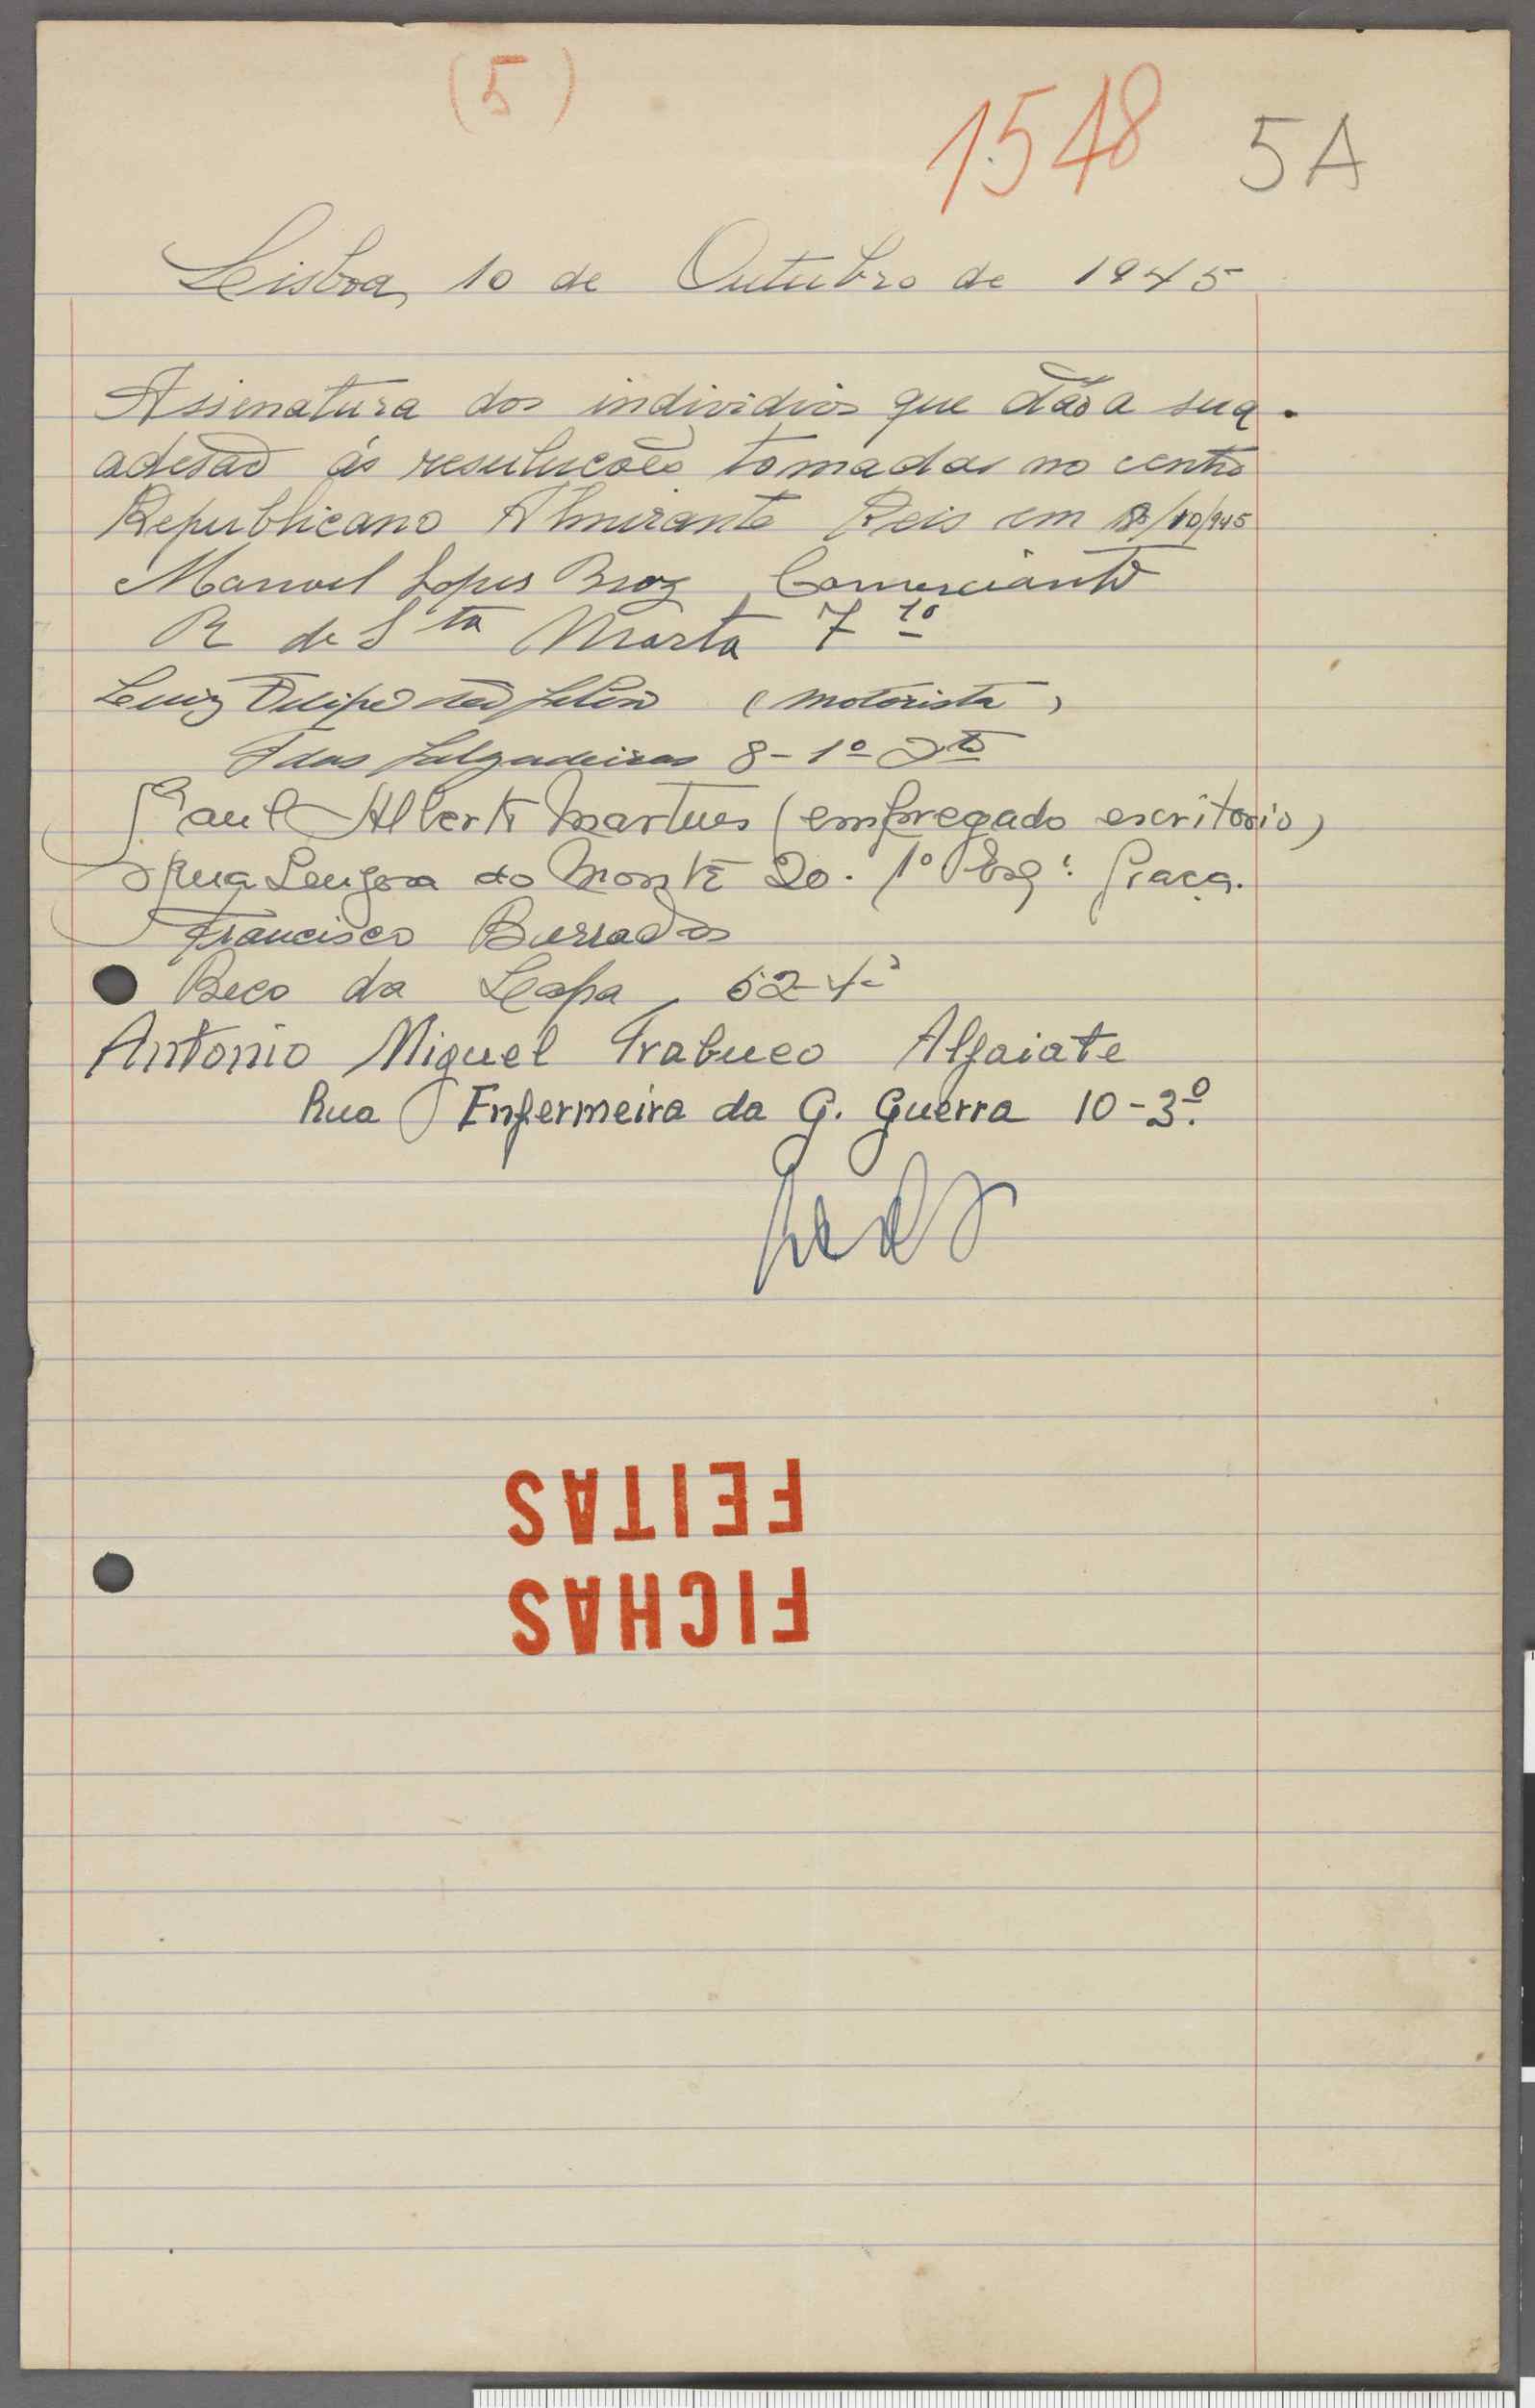 (5)
1548 5A
Lisboa, 10 de Outubro de 1945
Assinatura dos individios que dão a sua
adesão ás resuluções tomadas no centro
Republicano Almirante Reis em 8/10/945
Manoel Lopes Braz Comerciante
R de Sta Marta 7 1º
Luiz Filipe da Silva (motorista)
T das Salgadeiras 8-1º Dto
Raul Alberto Martins (empregado escritorio)
Rua Senhora do Monte 20. 1º Esqº Graça.
Francisco Barradas
Beco da Lapa, 62-4º
Antonio Miguel Trabuco Alfaiate
Rua Enfermeira da G. Guerra 10-3º.
FICHAS
FEITAS